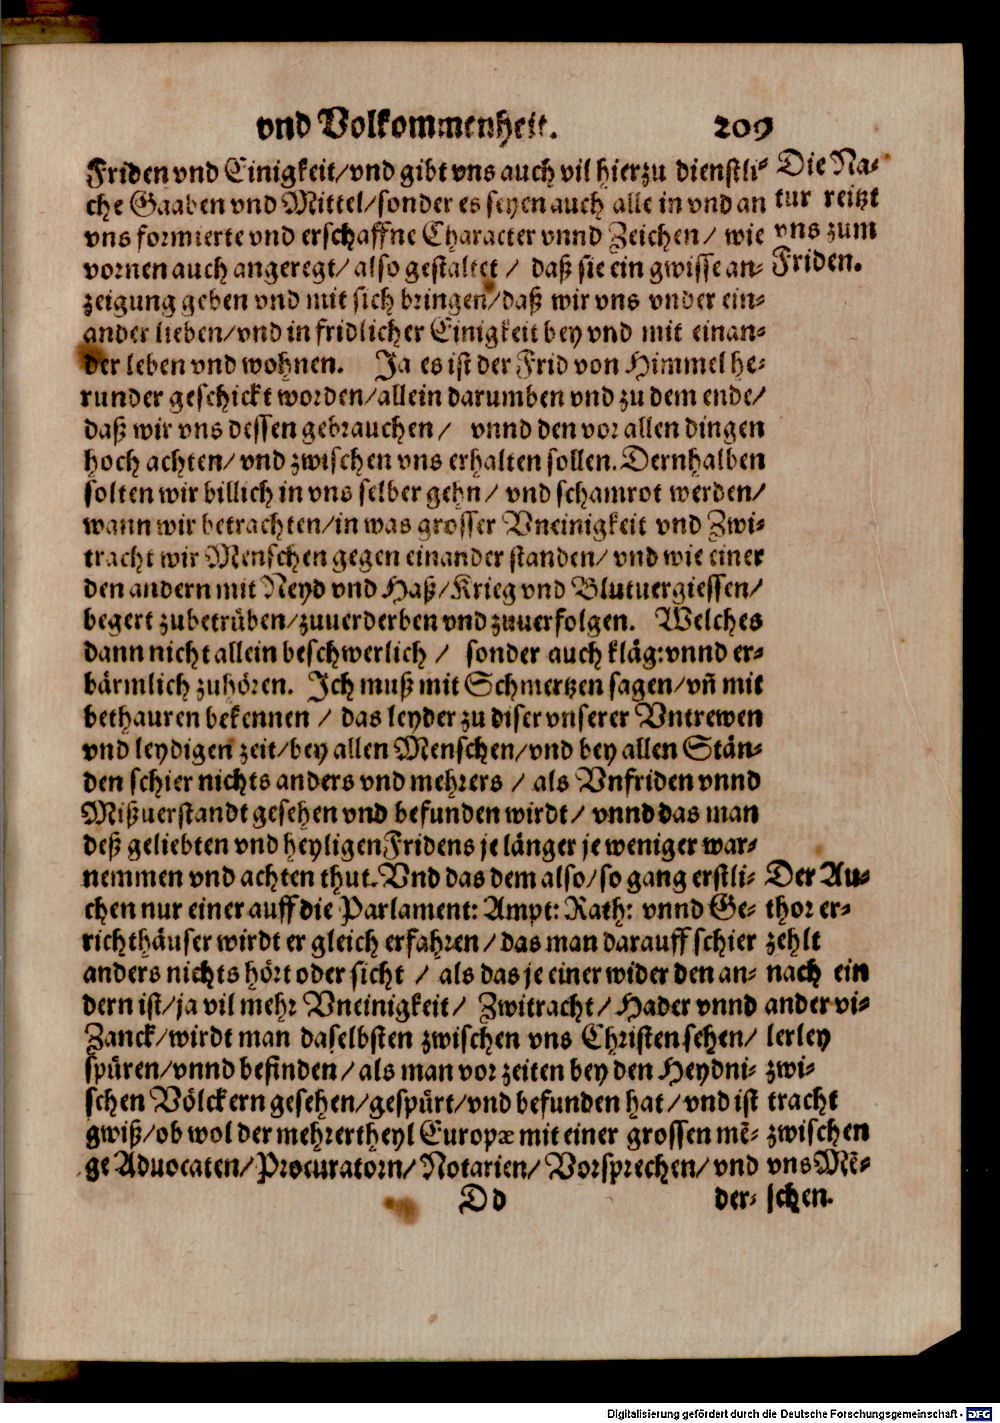 vnd Volkommenheit. 209
Friden vnd Einigkeit/vnd gibt vns auch vil hierzu dienstli-
che Gaaben vnd Mittel/sonder es seyen auch alle in vnd an
vns formierte vnd erschaffne Character vnnd Zeichen/ wie
vornen auch angeregt/ also gestaltet / daß sie ein gwisse an-
zeigung geben vnd mit sich bringen/daß wir vns vnder ein-
ander lieben/vnd in fridlicher Einigkeit bey vnd mit einan-
der leben vnd wohnen. Ja es ist der Frid von Himmel he-
runder geschickt worden/allein darumben vnd zu dem ende/
daß wir vns dessen gebrauchen/ vnnd den vor allen dingen
hoch achten/ vnd zwischen vns erhalten sollen. Dernhalben
solten wir billich in vns selber gehn/ vnd schamrot werden/
wann wir betrachten/in was grosser Vneinigkeit vnd Zwi-
tracht wir Menschen gegen einander standen/ vnd wie einer
den andern mit Neyd vnd Haß/Krieg vnd Blutuergiessen/
begert zubetrüben/zuuerderben vnd zuuerfolgen. Welches
dann nicht allein beschwerlich / sonder auch kläg: vnnd er-
bärmlich zuhören. Ich muß mit Schmertzen sagen/vñ mit
bethauren bekennen / das leyder zu diser vnserer Vntrewen
vnd leydigen zeit/bey allen Menschen/vnd bey allen Stän-
den schier nichts anders vnd mehrers / als Vnfriden vnnd
Mißuerstandt gesehen vnd befunden wirdt/ vnnd das man
deß geliebten vnd heyligen Fridens je länger je weniger war-
nemmen vnd achten thut. Vnd das dem also/so gang erstli-
chen nur einer auff die Parlament: Ampt: Rath: vnnd Ge-
richthäuser wirdt er gleich erfahren/das man darauff schier
anders nichts hört oder sicht / als das je einer wider den an-
dern ist/ja vil mehr Vneinigkeit/ Zwitracht/ Hader vnnd
Zanck/wirdt man daselbsten zwischen vns Christen sehen/
spüren/vnnd befinden/als man vor zeiten bey den Heydni-
schen Völckern gesehen/gespürt/vnd befunden hat/vnd ist
gwiß/ob wol der mehrertheyl Europæ mit einer grossen mē-
ge Aduocaten/Procuratorn/Notarien/Vorsprechen/vnd
Dd der-
Die Na-
tur reitzt
vns zum
Friden.
Der Au-
thor er-
zehlt
nach ein
ander vi-
lerley
zwi-
tracht
zwischen
vns Mē-
schen.
Digitalisierung gefördert durch die Deutsche Forschungsgemeinschaft - DFG